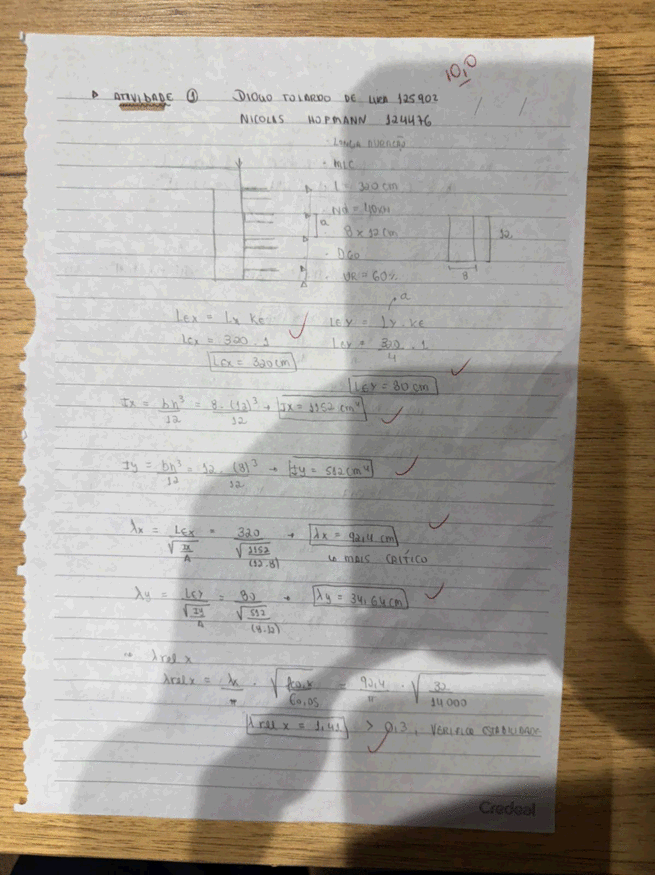 10,0
ATIVIDADE 1 DIOGO TOLARDO DE LIRA 125902
NICOLAS HOFMANN 124476
• LONGA DURAÇÃO
• MLC
• L = 320 cm
• Nd = 40kN
a • 8 x 12 cm 12
• D60 8
• UR = 60%
a
Lex = Lx KE Ley = Ly . KE
Lex = 320 . 1 Ley = 320/4 . 1
Lex = 320cm
Ley = 80 cm
Ix = bh³/12 = 8 . (12)³/12 → Ix = 1152 cm⁴
Iy = bh³/12 = 12 . (8)³/12 → Iy = 512 cm⁴
λx = Lex/√(Ix/A) = 320/√(1152/(12.8)) → λx = 92,4 cm
↳ MAIS CRÍTICO
λy = Ley/√(Iy/A) = 80/√(512/(8.12)) → λy = 34,64 cm
λrel x
λrel x = λx/π . √(fc0,k/E0,05) = 92,4/π . √(32/14000)
λrel x = 1,41 > 0,3, VERIFICO ESTABILIDADE
Credeal